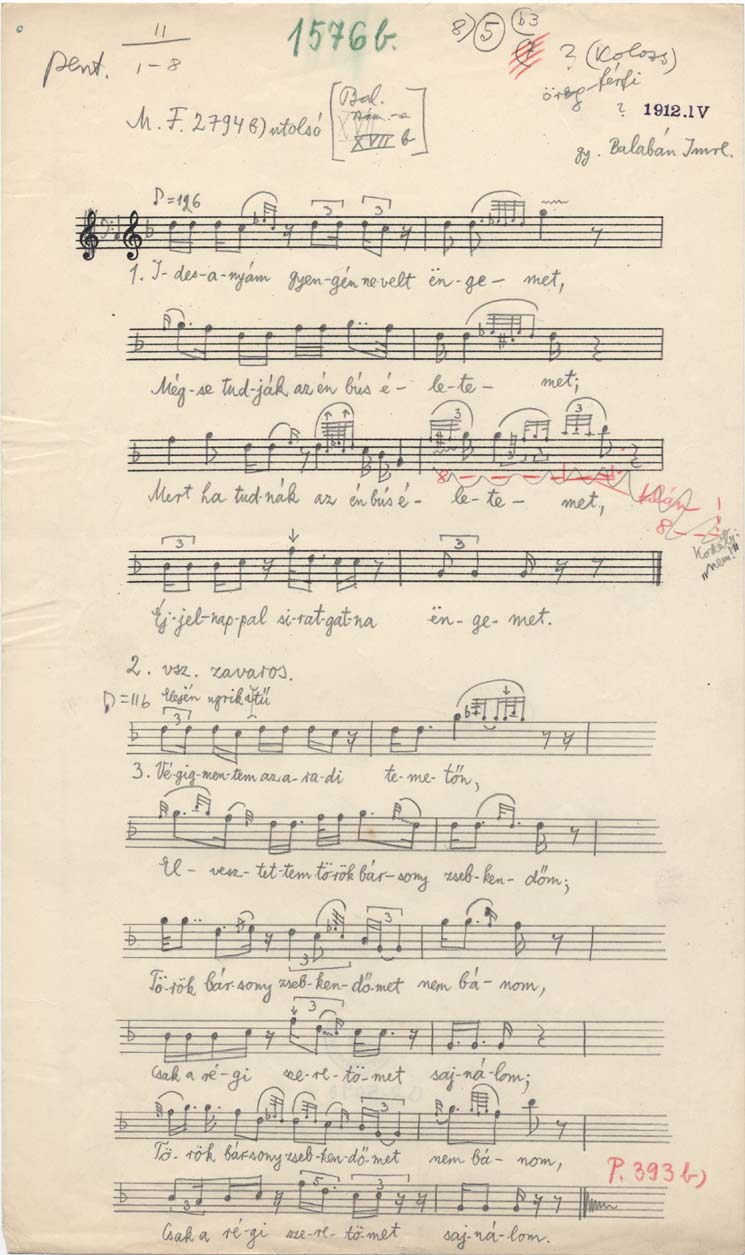 11
pent. 1-8
1576b.
8) 5 b3
7
? (Kolozs)
öreg férfi
?
1912.IV
gy. Balabán Imre.
M. F. 2794 b) utolsó
Bal.
XVII b
♪=126
1. I-des-a-nyám gyen-gén ne velt ën-ge-met,
Még-se tud-ják az én bús é-le-te-met;
Mert ha tud-nák az én bús é-le-te-met,
8 talán
8
Kodály:
"nem!"
Éj-jel-nap-pal si-rat-gat-na ën-ge-met.
2. vsz. zavaros.
♪=116
3. Vé-gig-men-tem az a-ra-di te-me-tőn,
El-vesz-tet-tem tö-rök bár-sony zseb-ken-dőm;
Tö-rök bár-sony zseb-ken-dő-met nem bá-nom,
Csak a ré-gi sze-re-tö-met saj-ná-lom;
Tö-rök bár-sony zseb-ken-dő-met nem bá-nom,
P. 393 b)
Csak a ré-gi sze-re-tö-met saj-ná-lom.